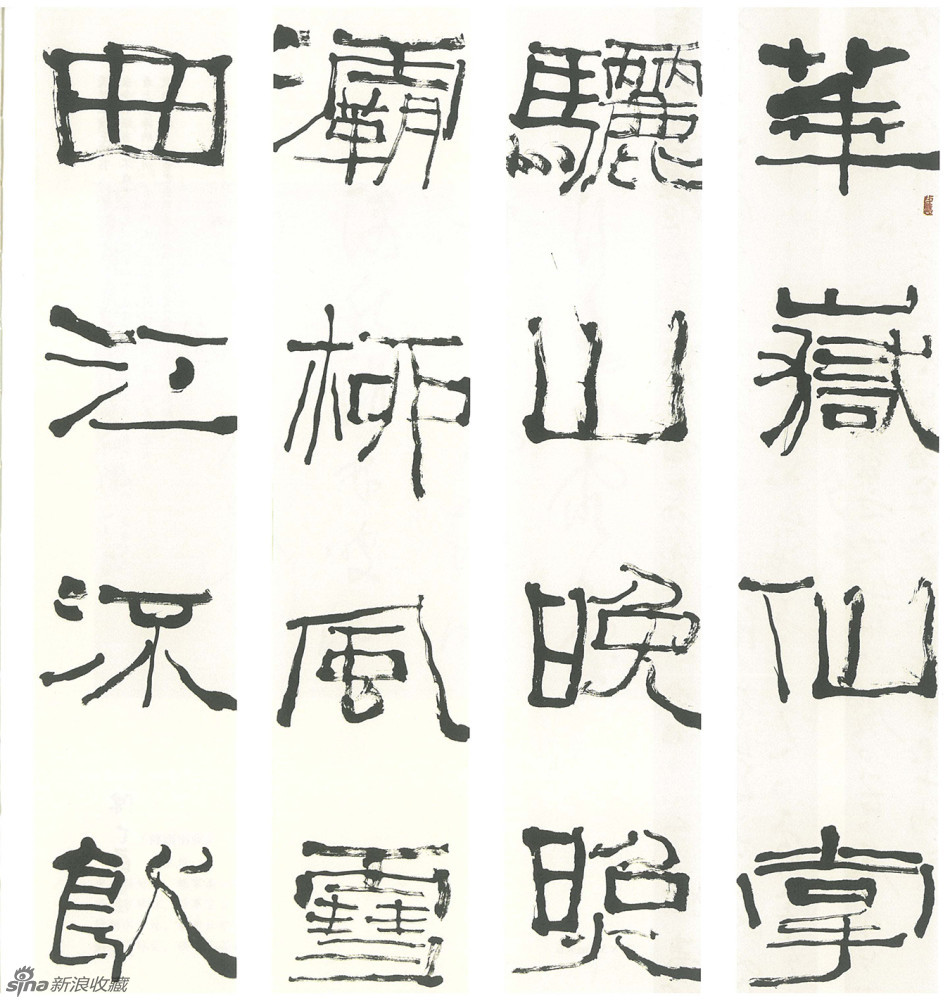 華嶽仙掌
驪山晚照
灞柳風雪
曲江流飲
sina新浪收藏